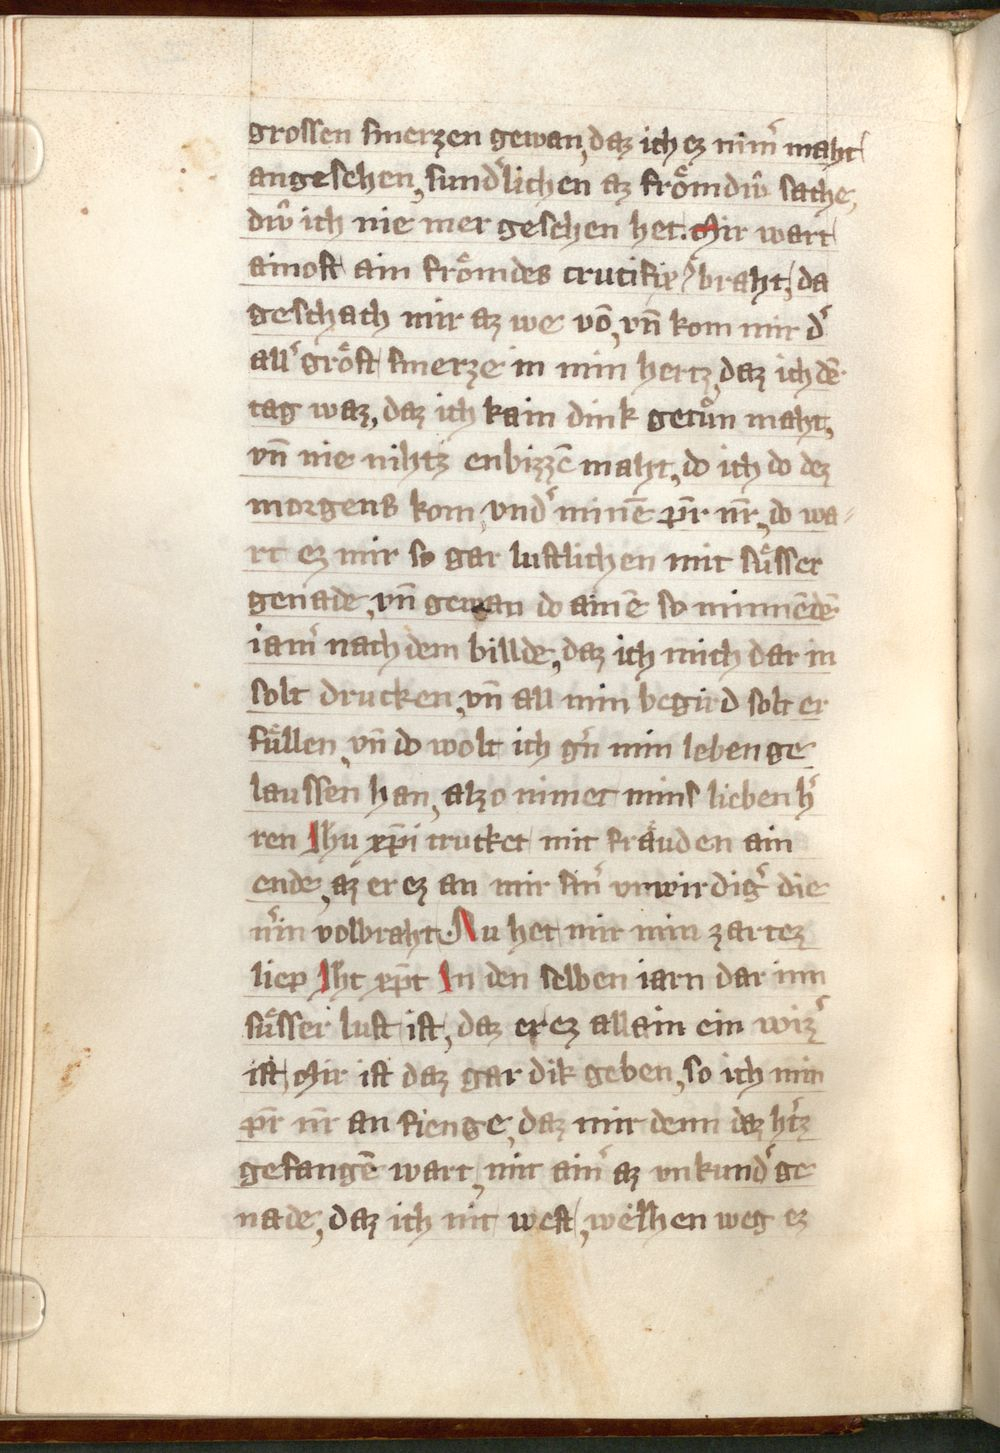 grossen smerzen gewan, daz ich ez nim̄ maht
angesehen, sund̾lichen az frömdiv̂ sache,
div̂ ich nie mer gesehen het. Mir wart
ainost ain frömdes crucifix braht, da
geschach mir az we vō, vn̄ kom mir d̾
all̾ gröst smerze in min hertz, daz ich dē
tag waz, daz ich kain dink getůn maht,
vn̄ nie nihtz enbizzē maht, do ich do dez
morgens kom, vnd̾ minē pr̄ nr̄, do wa-
rt ez mir so gar lustlichen mit süsser
genade, vn̄ gewan do ainē so minnēdē
iam̾ nach dem billde, daz ich mich dar in
solt drucken, vn̄ all min begird solt er
füllen, vn̄ do wolt ich g̾n min leben ge
laussen han, alzo nimet mins lieben h̾
ren Jhu xp̄i trucket mit fräuden ain
ende, az er ez an mir sin̾ vnwirdig̾ die
n̾in volbraht. Nu het mir min zartez
liep Jhc xp̄c In den selben iarn dar inn
süsser lust ist, daz er ez allain ein wiz̾
ist, Mir ist daz gar dik geben, so ich min
pr̄ nr̄ an fienge, daz mir denn daz h̾tz
gefangē wart, mit ain̾ az vnkund̾ ge
nade, daz ich nit west, welhen weg ez